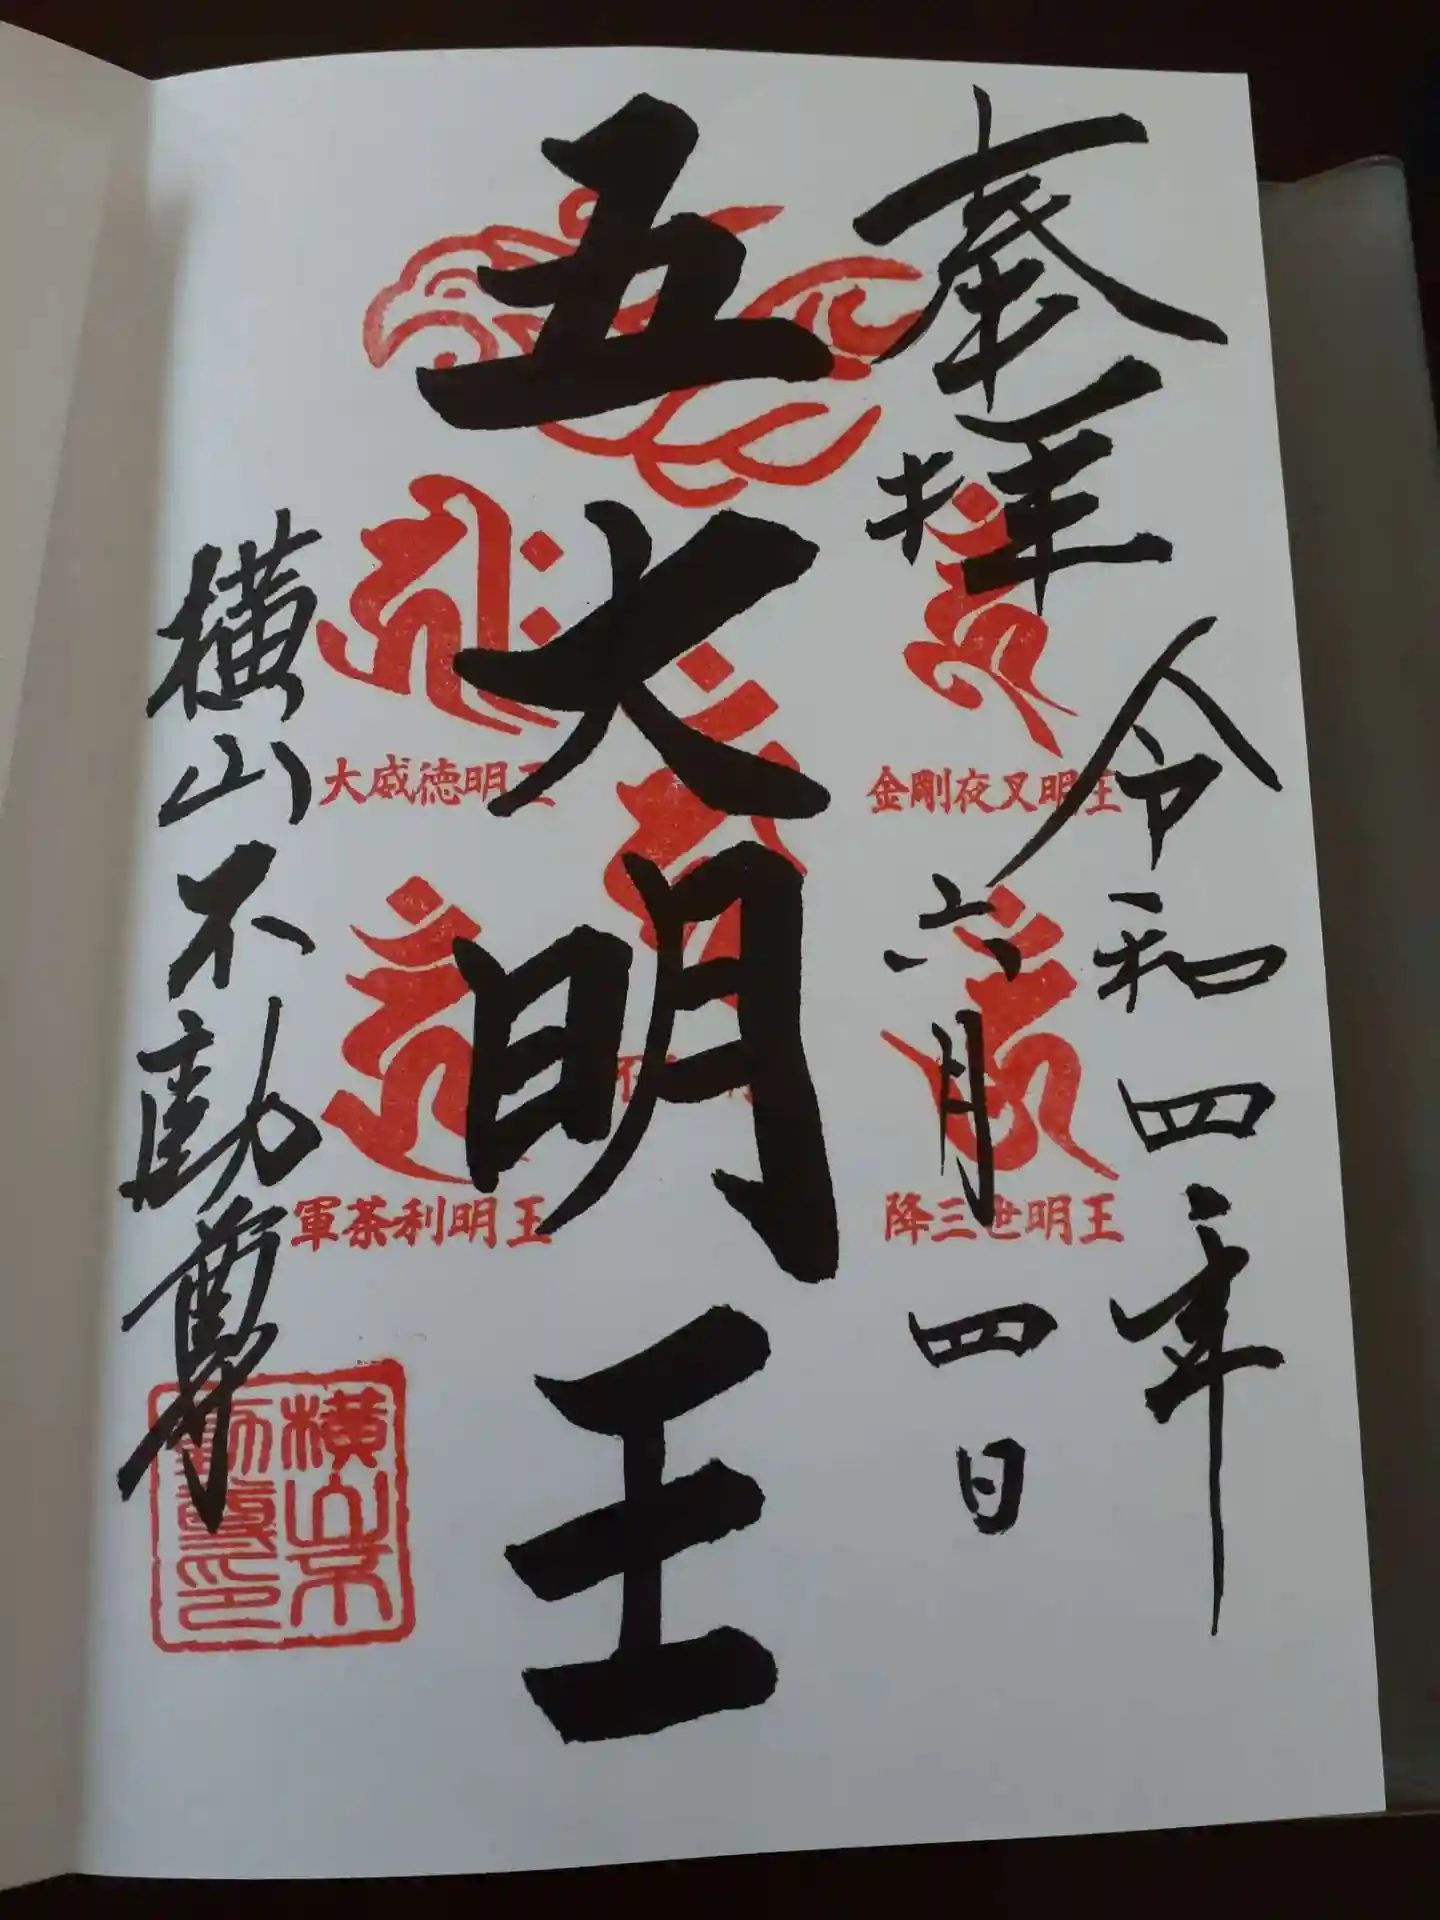 奉拝
令和四年
六月四日
五大明王
金剛夜叉明王
大威徳明王
降三世明王
軍荼利明王
横山不動尊
横山不
動尊印